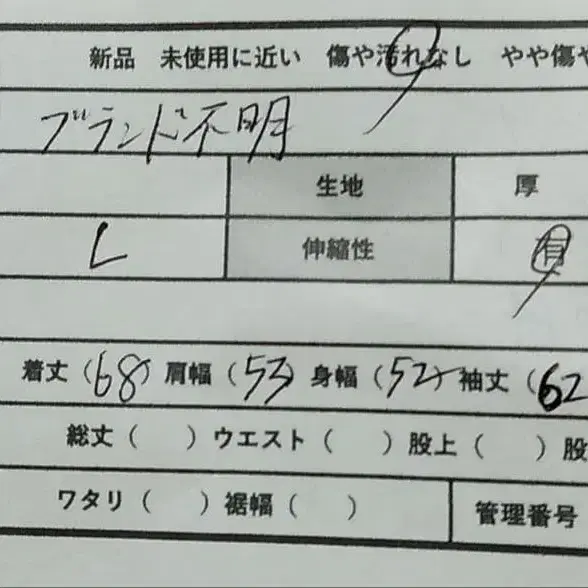 新品 未使用に近い 傷や汚れなし やや傷や
ブランド不明
生地 厚
L 伸縮性 有
着丈(68) 肩幅(53) 身幅(52) 袖丈(62
総丈( )ウエスト( )股上( )股
ワタリ( )裾幅( ) 管理番号